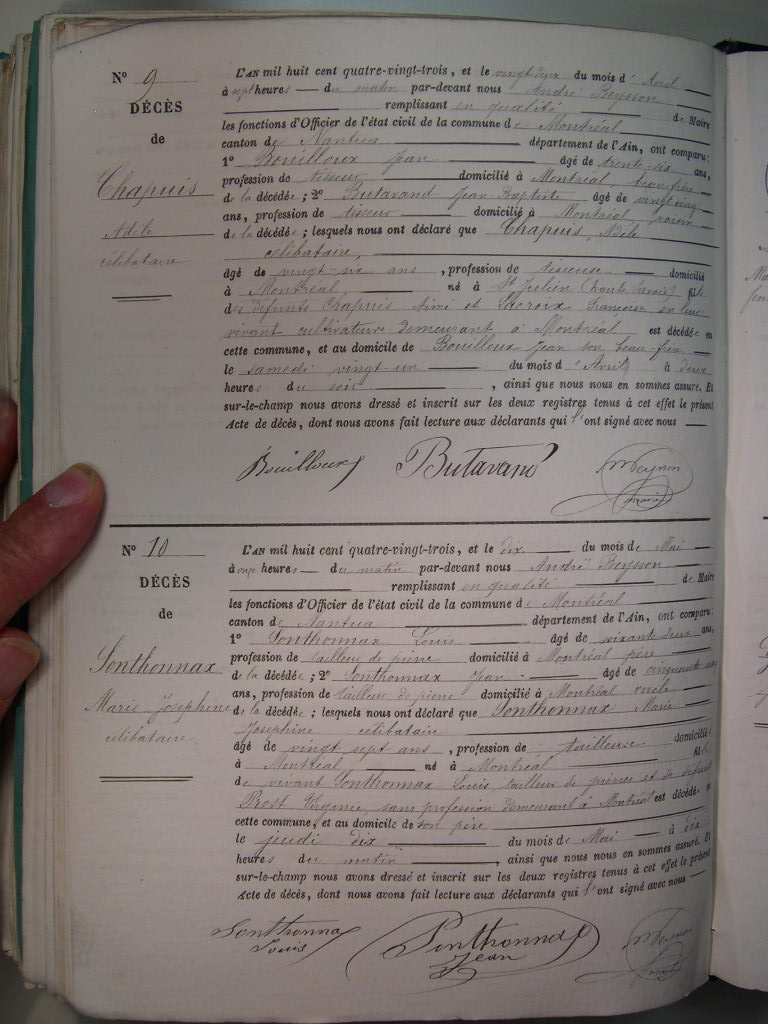 N° 9
DÉCÈS
de
Chapuis
Adèle
célibataire
L'AN mil huit cent quatre-vingt-trois, et le vingt deux du mois d' Avril
à sept heures du matin par-devant nous André Peysson
remplissant en qualité de Maire
les fonctions d'Officier de l'état civil de la commune de Montréal
canton de Nantua département de l'Ain, ont comparu:
1° Bouilloux Jean âgé de trente six ans,
profession de tisseur domicilié à Montréal, beau-frère
de la décédée; 2° Butavand Jean Baptiste âgé de vingt cinq
ans, profession de tisseur domicilié à Montréal, voisin
de la décédée; lesquels nous ont déclaré que Chapuis, Adèle
célibataire,
âgé de vingt-six ans, profession de tisseuse domicilié
à Montréal, né à St Julien (haute Savoie) fille
des défunts Chapuis Aimé et Françoise en leur
vivant cultivateurs demeurant à Montréal est décédée en
cette commune, et au domicile de Bouilloux Jean son beau-frère
le samedi vingt-un du mois d' Avril à deux
heures du soir, ainsi que nous nous en sommes assuré. Et
sur-le-champ nous avons dressé et inscrit sur les deux registres tenus à cet effet le présent
Acte de décès, dont nous avons fait lecture aux déclarants qui l'ont signé avec nous
Bouilloux Butavand
N° 10
DÉCÈS
de
Sonthonnax
Marie Joséphine
célibataire
L'AN mil huit cent quatre-vingt-trois, et le dix du mois de Mai
à onze heures du matin par-devant nous André Peysson
remplissant en qualité de Maire
les fonctions d'Officier de l'état civil de la commune de Montréal
canton de Nantua département de l'Ain, ont comparu:
1° Sonthonnax Louis âgé de soixante deux ans,
profession de tailleur de pierre domicilié à Montréal père
de la décédée; 2° Sonthonnax Jean âgé de cinquante
ans, profession de tailleur de pierre domicilié à Montréal oncle
de la décédée; lesquels nous ont déclaré que Sonthonnax Marie
Joséphine célibataire
âgé de vingt sept ans, profession de tailleuse domicilié
à Montréal né à Montréal fille
de vivant Sonthonnax Louis, tailleur de pierres et de défunte
Prost Virginie, sans profession demeurant à Montréal est décédée en
cette commune, et au domicile de son père
le jeudi dix du mois de Mai à dix
heures du matin, ainsi que nous nous en sommes assuré. Et
sur-le-champ nous avons dressé et inscrit sur les deux registres tenus à cet effet le présent
Acte de décès, dont nous avons fait lecture aux déclarants qui l'ont signé avec nous
Sonthonnax Louis Sonthonnax Jean